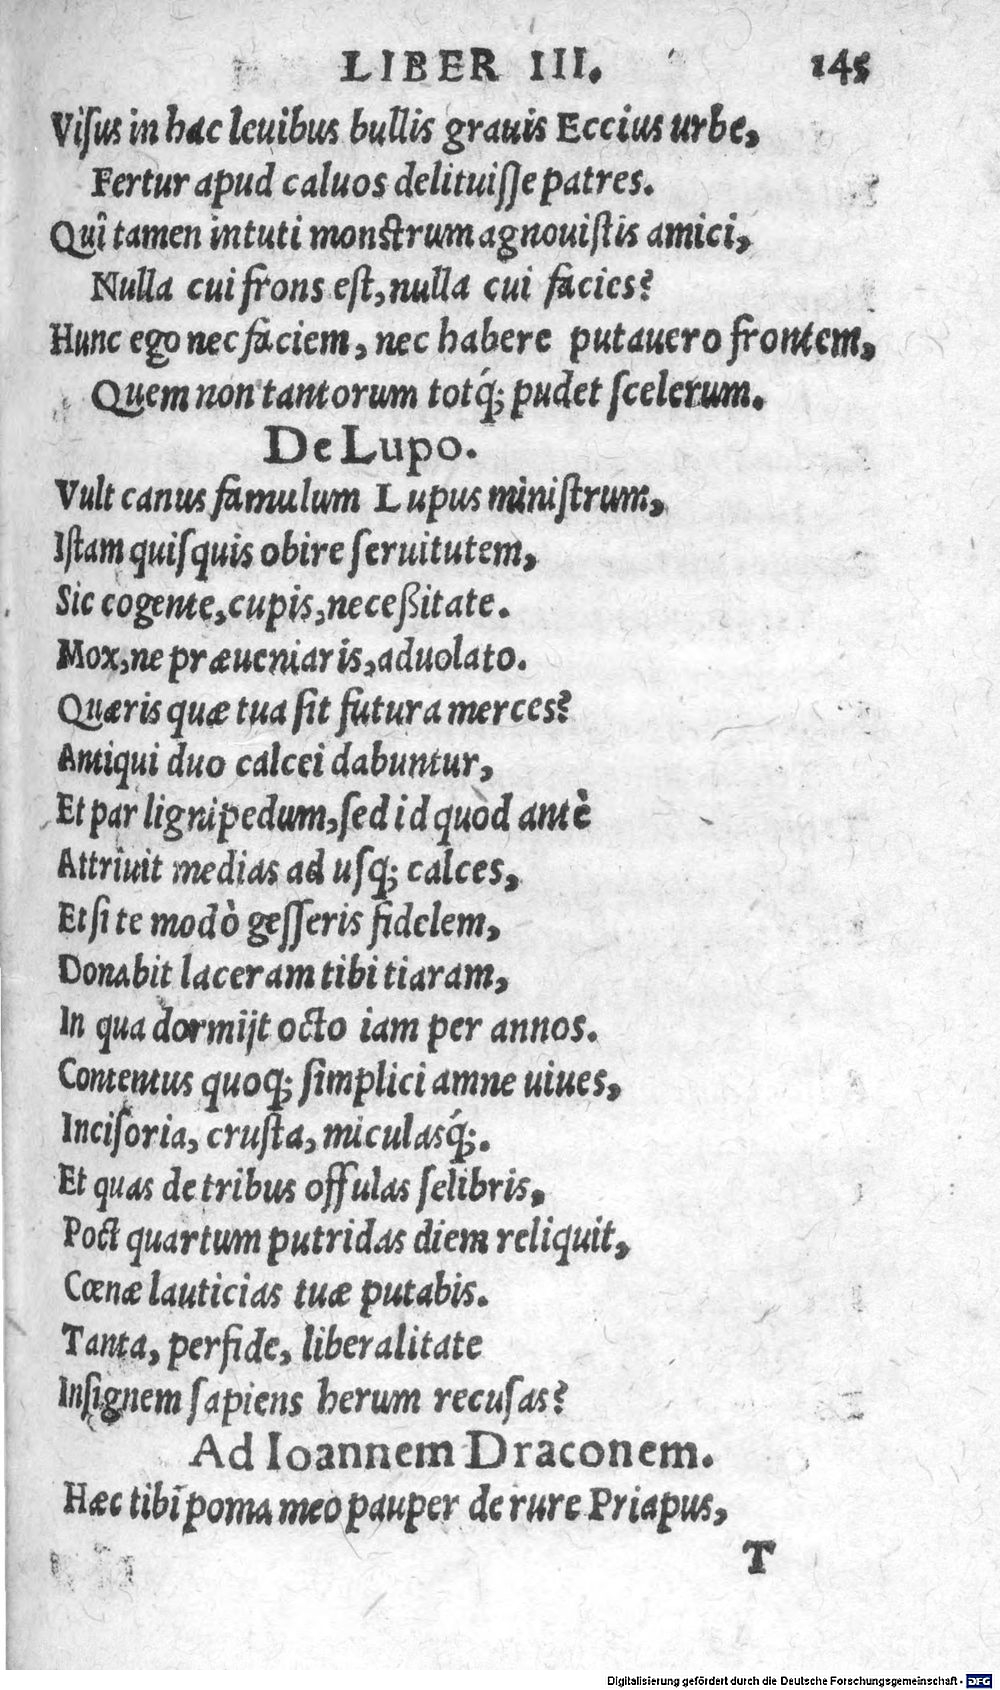 LIBER III. 145
Viſus in hac leuibus bullis grauis Eccius urbe,
Fertur apud caluos delituiſſe patres.
Quî tamen intuti monſtrum agnouiſtis amici,
Nulla cui frons eſt, nulla cui facies?
Hunc ego nec faciem, nec habere putauero frontem,
Quem non tantorum totq́; pudet ſcelerum.
De Lupo.
Vult canus famulum Lupus miniſtrum,
Iſtam quiſquis obire ſeruitutem,
Sic cogente, cupis, neceßitate.
Mox, ne præueniaris, aduolato.
Quæris quæ tua ſit futura merces?
Antiqui duo calcei dabuntur,
Et par lignipedum, ſed id quod antè
Attriuit medias ad uſq; calces,
Et ſi te modò geſſeris fidelem,
Donabit laceram tibi tiaram,
In qua dormijt octo iam per annos.
Contentus quoq; ſimplici amne uiues,
Inciſoria, cruſta, miculasq́;.
Et quas de tribus offulas ſelibris,
Poct quartum putridas diem reliquit,
Cœnæ lauticias tuæ putabis.
Tanta, perfide, liberalitate
Inſignem ſapiens herum recuſas?
Ad Ioannem Draconem.
Hæc tibi poma meo pauper de rure Priapus,
T
Digitalisierung gefördert durch die Deutsche Forschungsgemeinschaft - DFG